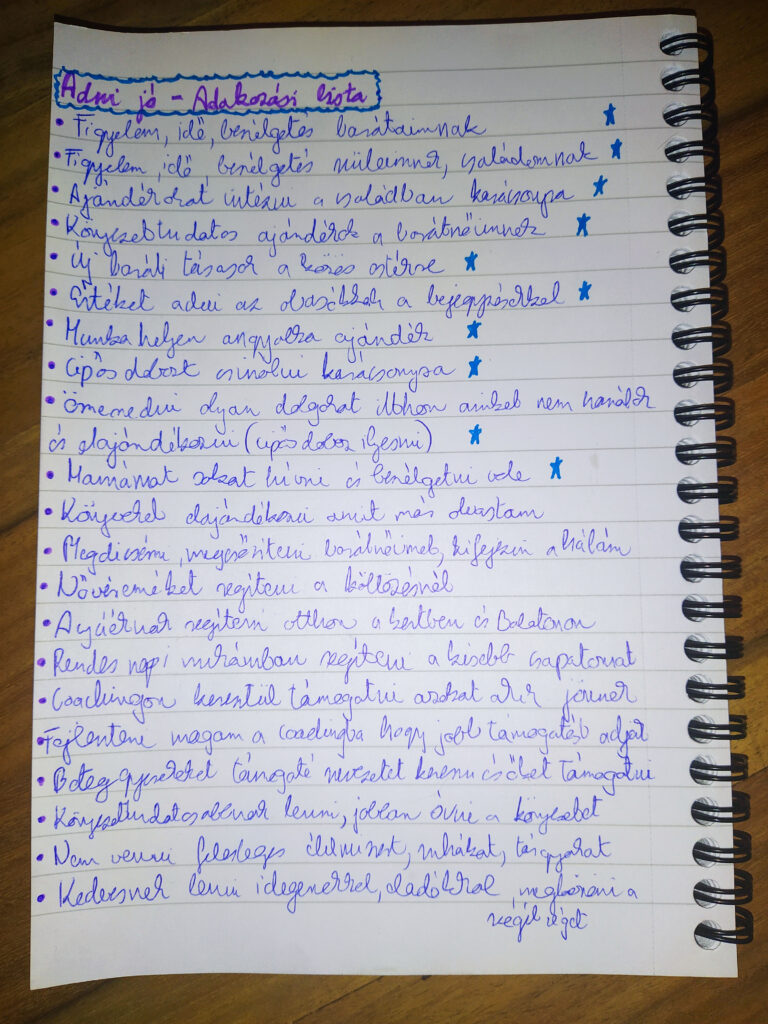 Adni jó - Adakozási lista
• Figyelem, idő, beszélgetés barátaimnak
• Figyelem, idő, beszélgetés szüleimnek, családomnak
• Ajándékokat intézni a családban karácsonyra
• Környezettudatos ajándékok a barátnőimnek
• Új baráti társasor a közös estékre
• Értéket adni az olvasóknak a bejegyzésekkel
• Munkahelyen angyalka ajándék
• Cipős dobozt csinálni karácsonyra
• Összeszedni olyan dolgokat itthon amiket nem használok
és elajándékozni (cipős doboz ilyesmi)
• Mamámat sokat hívni és beszélgetni vele
• Könyveket elajándékozni amit már olvastam
• Megdicsérni, megerősíteni barátnőimet, kifejezni a hálám
• Nővéreméket segíteni a költözésnél
• Anyáéknak segíteni otthon a kertben és Balatonon
• Rendes napi munkámban segíteni a kisebb csapatomat
• Coachingon keresztül támogatni azokat akik jönnek
• Fejleszteni magam a coachingba hogy jobb támogatást adjak
• Beteg gyerekeket támogató szervezetet keresni és őket támogatni
• Környezettudatosabbnak lenni, jobban óvni a környezetet
• Nem venni felesleges élelmiszert, ruhákat, tárgyakat
• Kedvesnek lenni idegenekkel, eladókkal, megköszönni a
segítséget